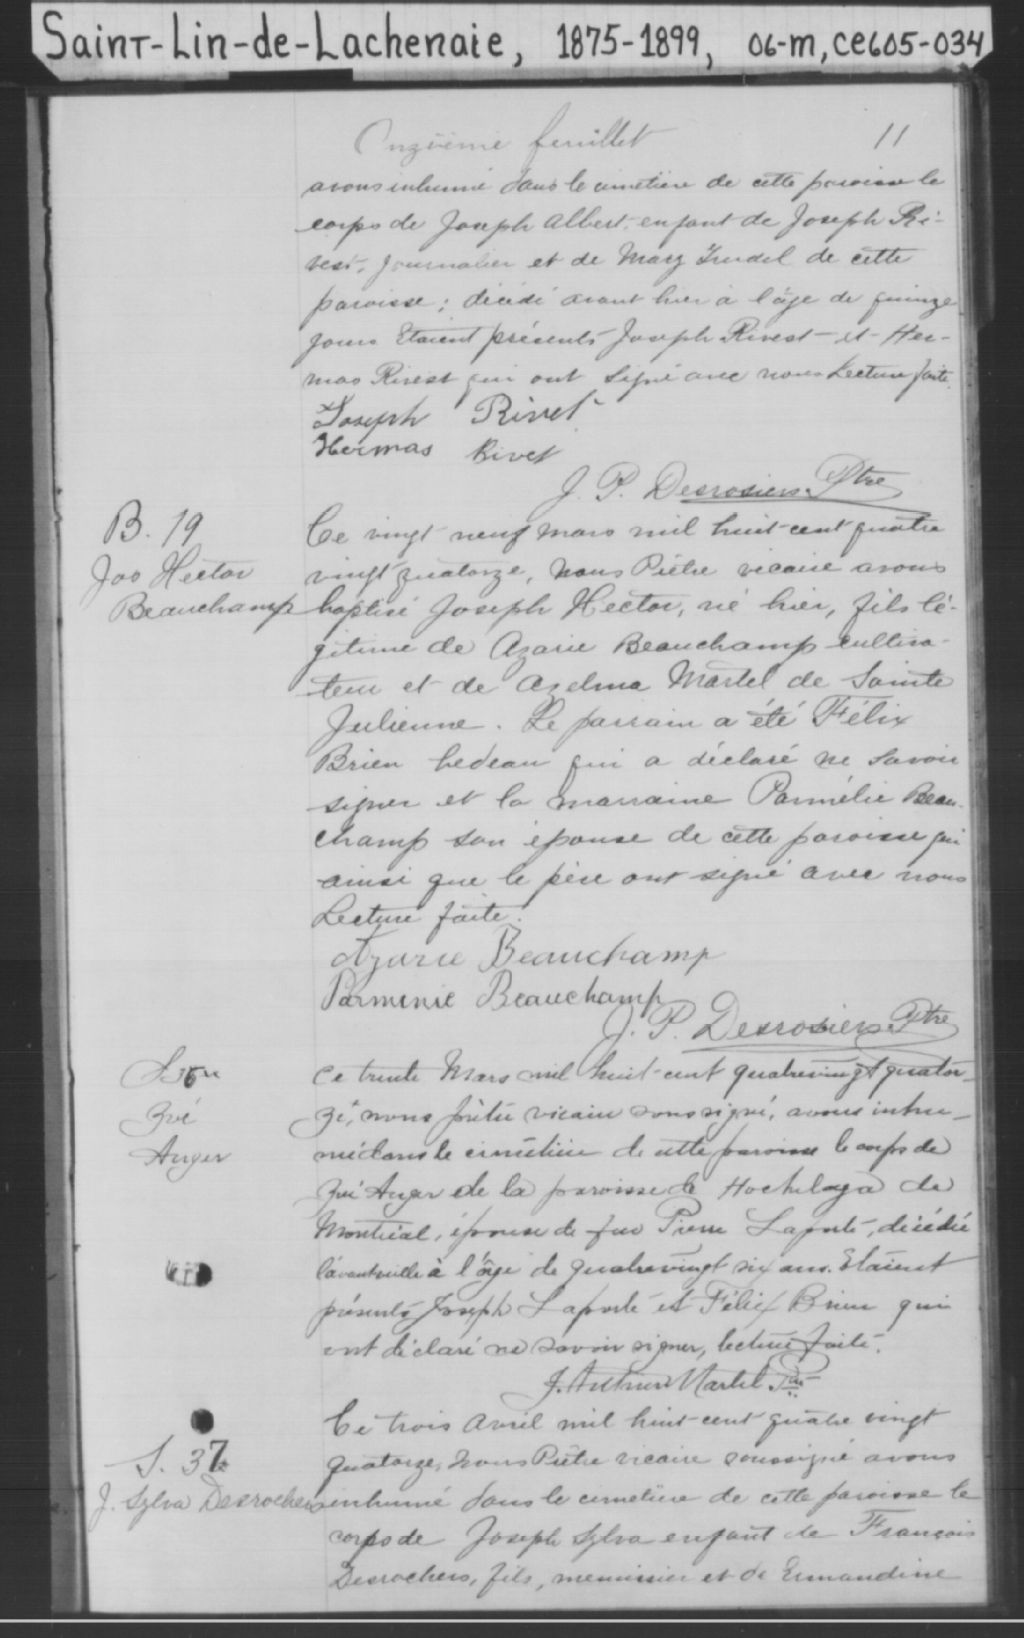 Saint-Lin-de-Lachenaie, 1875-1899, 06-m, ce605-034
Onzième feuillet 11
avons inhumé dans le cimetière de cette paroisse le
corps de Joseph Albert, enfant de Joseph Ri-
vest, journalier et de Mary Trudel de cette
paroisse; décédé avant hier à l'âge de quinze
jours Etaient présents Joseph Rivest et Her-
mas Rivest qui ont signé avec nous Lecture faite.
Joseph Rivet
Hermas Rivet
J. P. Desrosiers Ptre
B. 19
Jos Hector
Beauchamp
Ce vingt neuf mars mil huit cent quatre
vingt quatorze, nous Prêtre vicaire avons
baptisé Joseph Hector, né hier, fils lé-
gitime de Azarie Beauchamp cultiva-
teur et de Azelma Martel de Sainte
Julienne. Le parrain a été Félix
Brien bedeau qui a déclaré ne savoir
signer et la marraine Parmélie Beau-
champ son épouse de cette paroisse qui
ainsi que le père ont signé avec nous
Lecture faite.
Azarie Beauchamp
Parmenie Beauchamp
J. P. Desrosiers Ptre
Zoé
Anger
Ce trente Mars mil huit-cent quatrevingt quator-
ze, nous prêtre vicaire soussigné, avons inhu-
mé dans le cimetière de cette paroisse le corps de
Zoé Anger de la paroisse de Hochelaga de
Montréal, épouse de feu Pierre Laporte, décédée
l'avantveille à l'âge de quatrevingt six ans. Etaient
présents Joseph Laporte et Félix Brien qui
ont déclaré ne savoir signer, lecture faite.
J. Arthur Martel Ptre
S. 37
J. Sylva Desrochers
Ce trois Avril mil huit-cent quatre vingt
quatorze, nous Prêtre vicaire soussigné avons
inhumé dans le cimetière de cette paroisse le
corps de Joseph Sylva enfant de François
Desrochers, fils, menuisier et de Ermandine